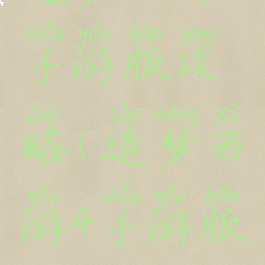 shǒu yóu bǎn gōng
手游版攻
lüè zào mèng xī
略(造梦西
yóu shǒu yóu bǎn
游4手游版